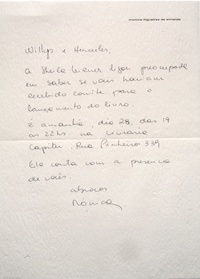 monica figueiras de almeida
Willys e Hercules,
A Sheila Leirner ligou preocupada
em saber se vocês haviam
recebido convite para o
lançamento do livro.
é amanhã, dia 28, das 19
às 22hs na livraria
Capitu, Rua Pinheiro 339
Ela conta com a presença
de vocês.
abraços
Monica